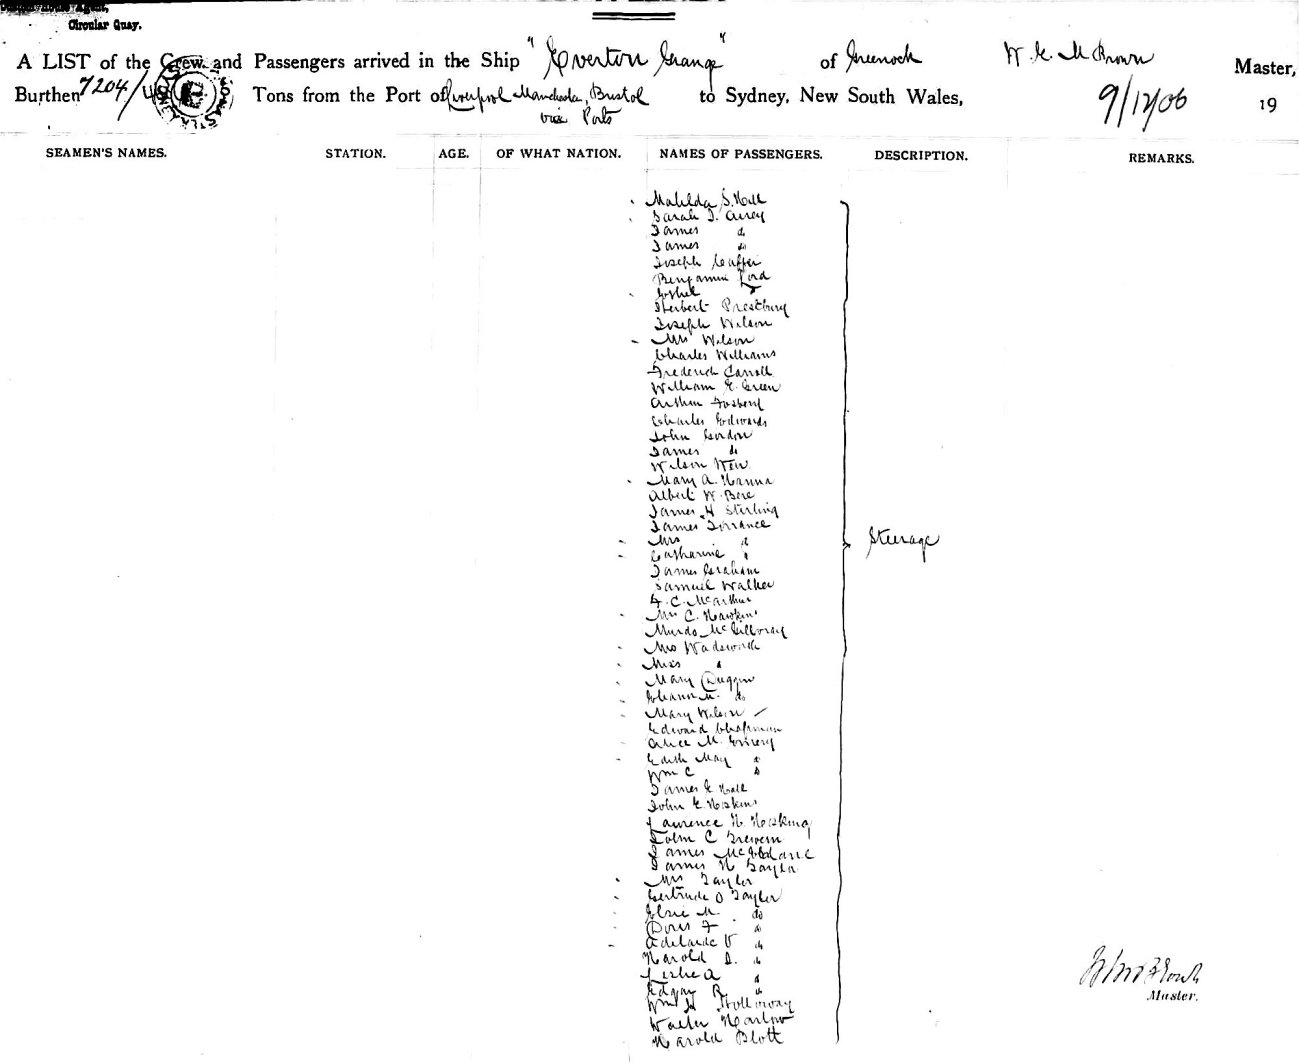 Circular Quay.
A LIST of the Crew and Passengers arrived in the Ship "Everton Grange" of Greenock W. E. McBrown Master,
Burthen 7204/ Tons from the Port of Liverpool Manchester, Bristol to Sydney, New South Wales, 9/12/06 19
via Ports
SEAMEN'S NAMES. STATION. AGE. OF WHAT NATION. NAMES OF PASSENGERS. DESCRIPTION. REMARKS.
Matilda S. Hall
Sarah J. Airey
James do
James do
Joseph
Benjamin Lord
Ethel
Herbert Prestbury
Joseph Wilson
Mrs Wilson
Charles Williams
Frederick Carroll
William E. Green
Arthur
Charles Edwards
John Gordon
James do
Wilson Weir
Mary A. Hanna
Albert W. Bere
James H Sterling
James Torrance
Mrs d
Steerage
Catharine d
James Graham
Samuel Walker
F. C. McArthur
Mrs C. Hawkins
Murdo McGillvray
Mrs Wadsworth
Miss d
Mary Duggan
Johann M. do
Mary Wilson
Edward Chapman
Alice M. Emery
Edith May d
Wm C d
James E Hall
John E. Hoskins
Laurence H. Hosking
John C Trewern
James
James H Taylor
Mrs Taylor
Gertrude O Taylor
Elsie M. do
Doris F. do
Adelaide V do
Harold S. do
Leslie A d
Edgar R. do
Wm H Holloway
Walter Harlow
Harold Blott
Master.